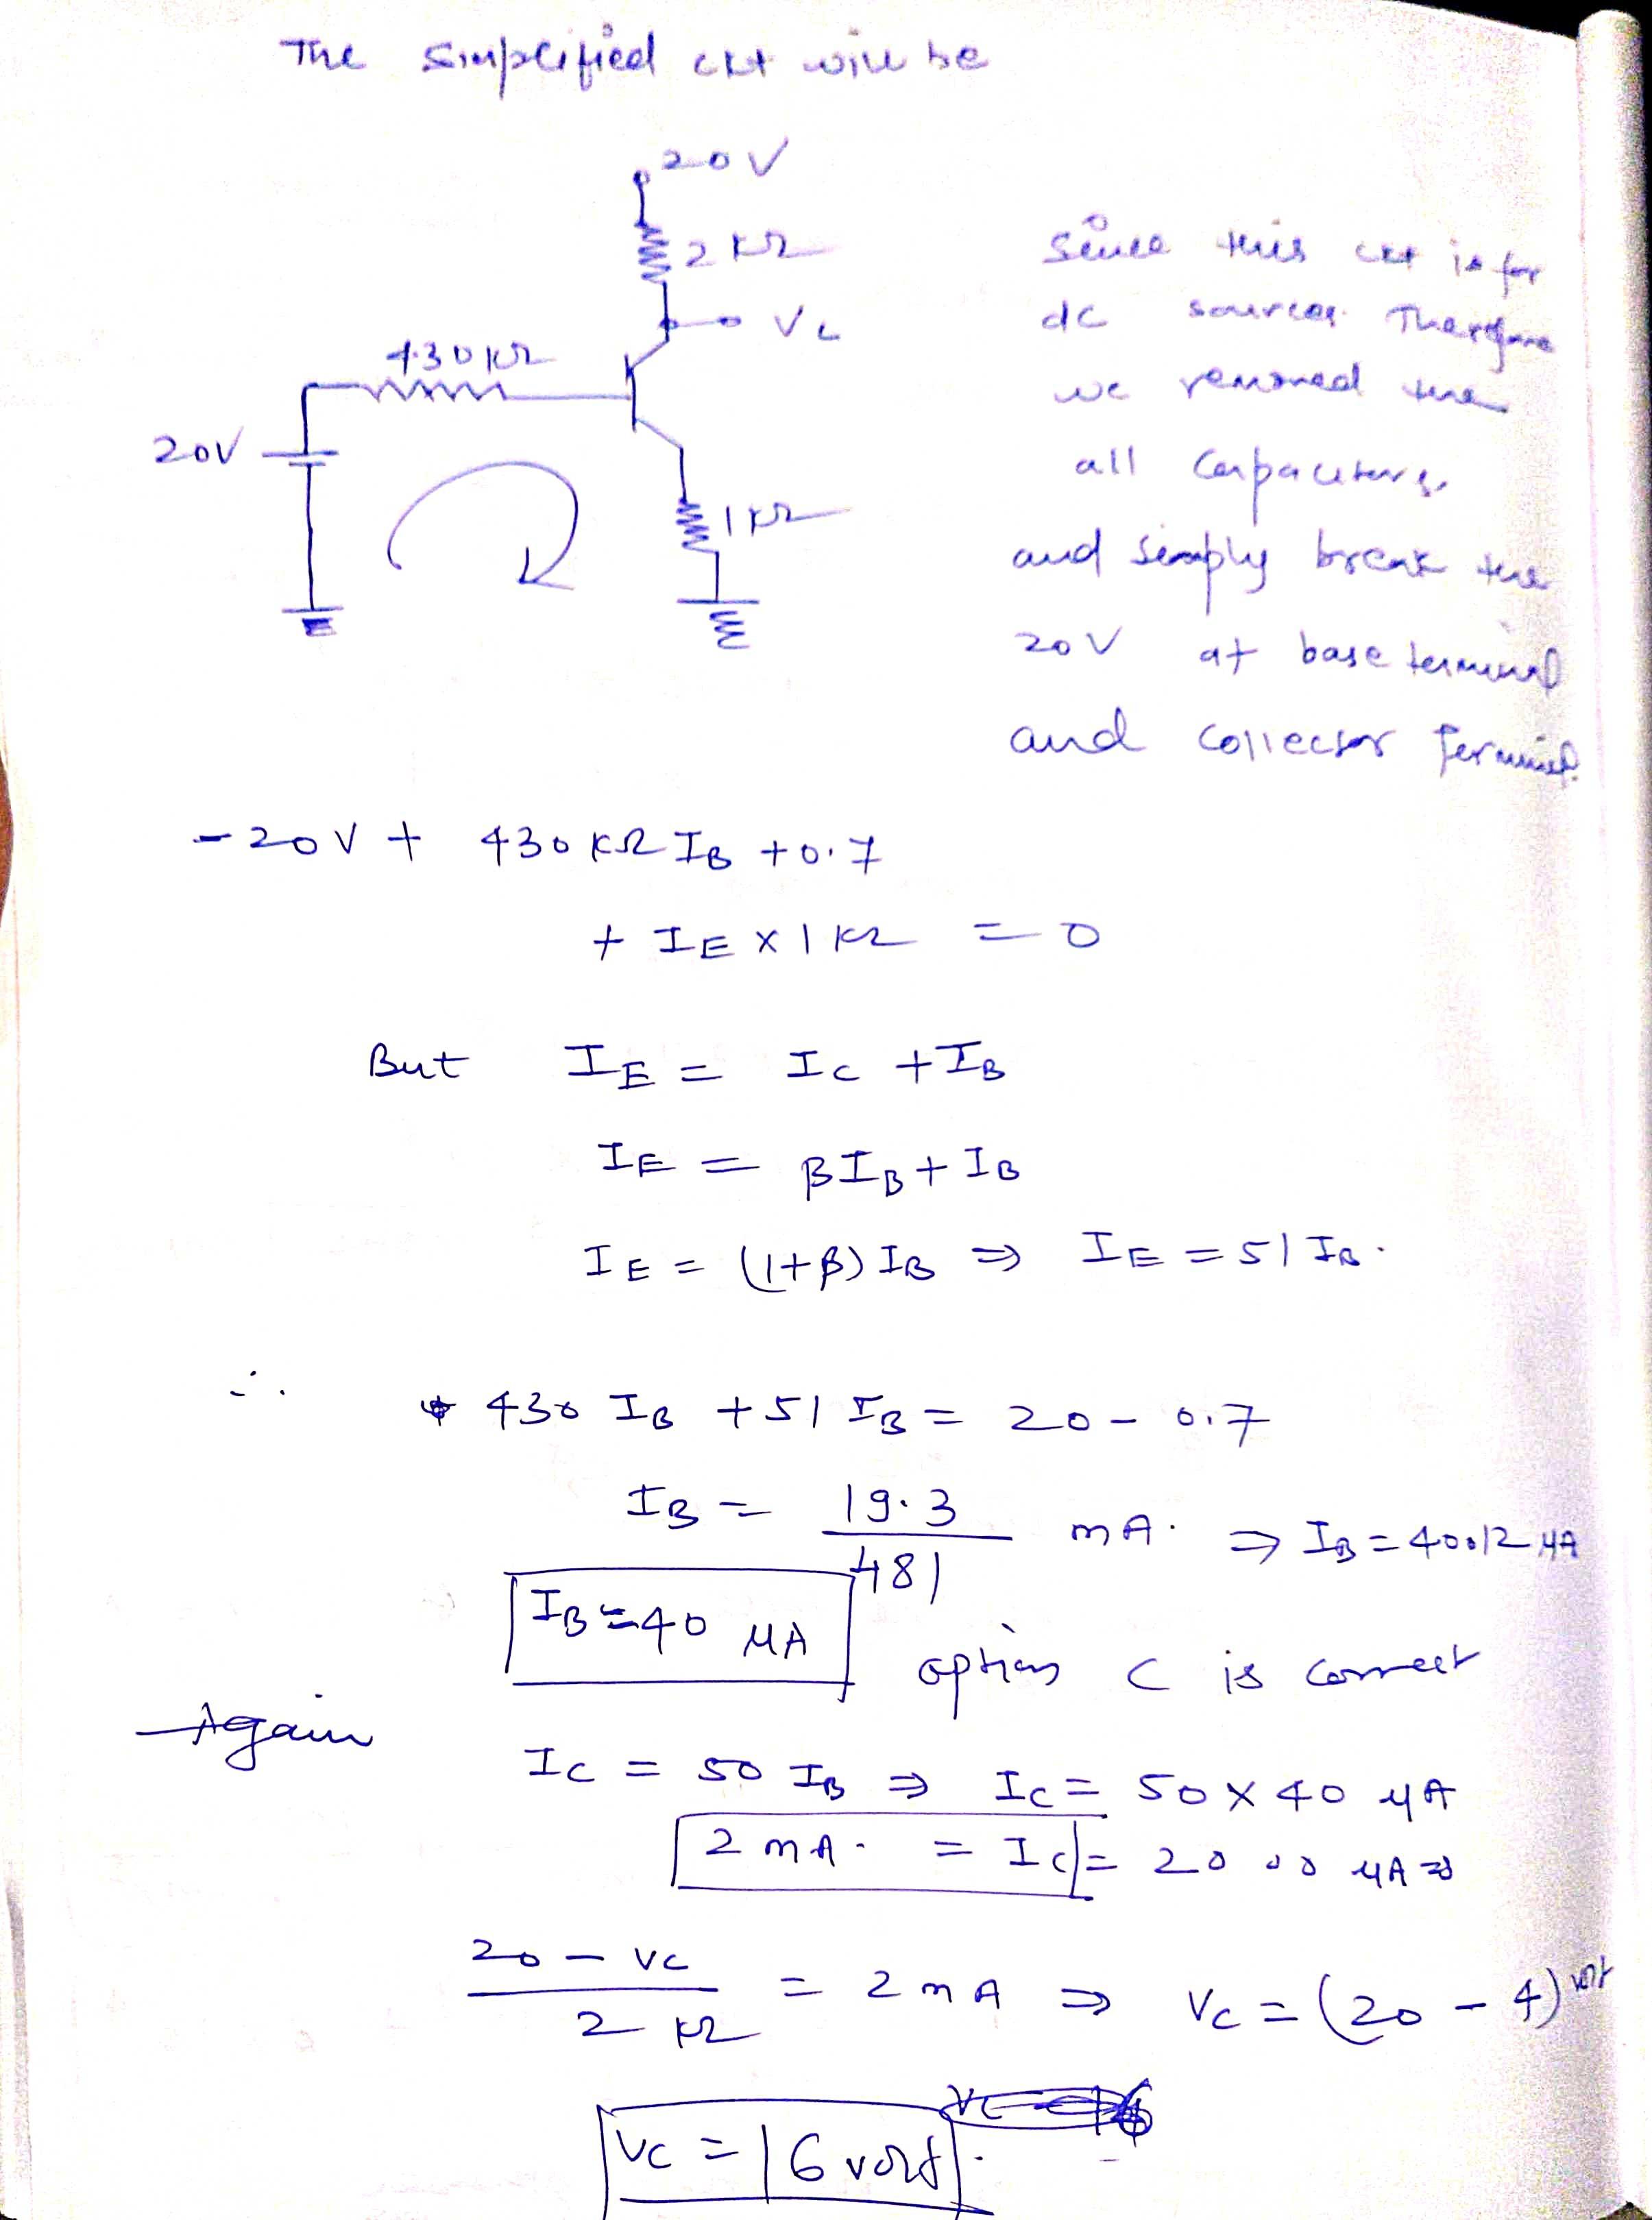 The simplified ckt will be
20V
2 KΩ
Vc
430KΩ
20V
1KΩ
Since this ckt is for
dc sources. Therefore
we removed the
all Capacitors,
and simply break the
20V at base terminal
and collector terminal.
- 20V + 430 KΩ IB + 0.7
+ IE X 1 KΩ = 0
But IE = Ic + IB
IE = βIB + IB
IE = (1+β) IB ⇒ IE = 51 IB.
∴ 430 IB + 51 IB = 20 - 0.7
IB = 19.3 / 481 mA. ⇒ IB = 40.12 μA
IB ≅ 40 μA option C is correct
Again
Ic = 50 IB ⇒ Ic = 50 X 40 μA
2 mA. = Ic = 2000 μA ⇒
20 - Vc / 2 KΩ = 2 mA ⇒ Vc = (20 - 4) volt
Vc = 16 volt.